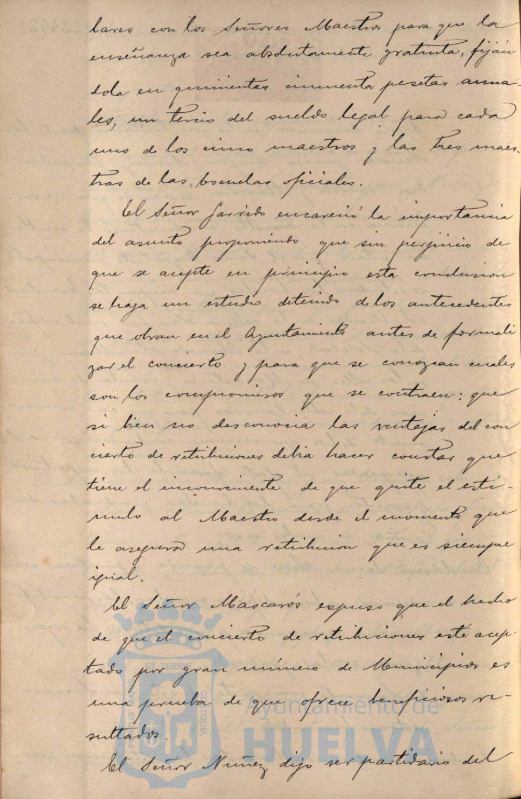 bares con los Señores Maestros para que la
enseñanza sea absolutamente gratuita, fijan
dola en quinientas cincuenta pesetas anua-
les, un tercio del sueldo legal para cada
uno de los cinco maestros y las tres maes-
tras de las Escuelas oficiales.
El Señor Garrido encareció la importancia
del asunto proponiendo que sin perjuicio de
que se acepte en principio esta conclusion
se haga un estudio detenido de los antecedentes
que obran en el Ayuntamiento antes de formali
zar el concierto y para que se conozcan cuales
son los compromisos que se contraen: que
si bien no desconocia las ventajas del con
cierto de retribuciones debia hacer constar que
tiene el inconveniente de que quite el estí-
mulo al Maestro desde el momento que
le asegura una retribucion que es siempre
igual.
El Señor Mascarós expuso que el hecho
de que el concierto de retribuciones esté acep-
tado por gran número de Municipios es
una prueba de que ofrece beneficiosos re-
sultados.
El Señor Nuñez dijo ser partidario del
Ayuntamiento de
HUELVA